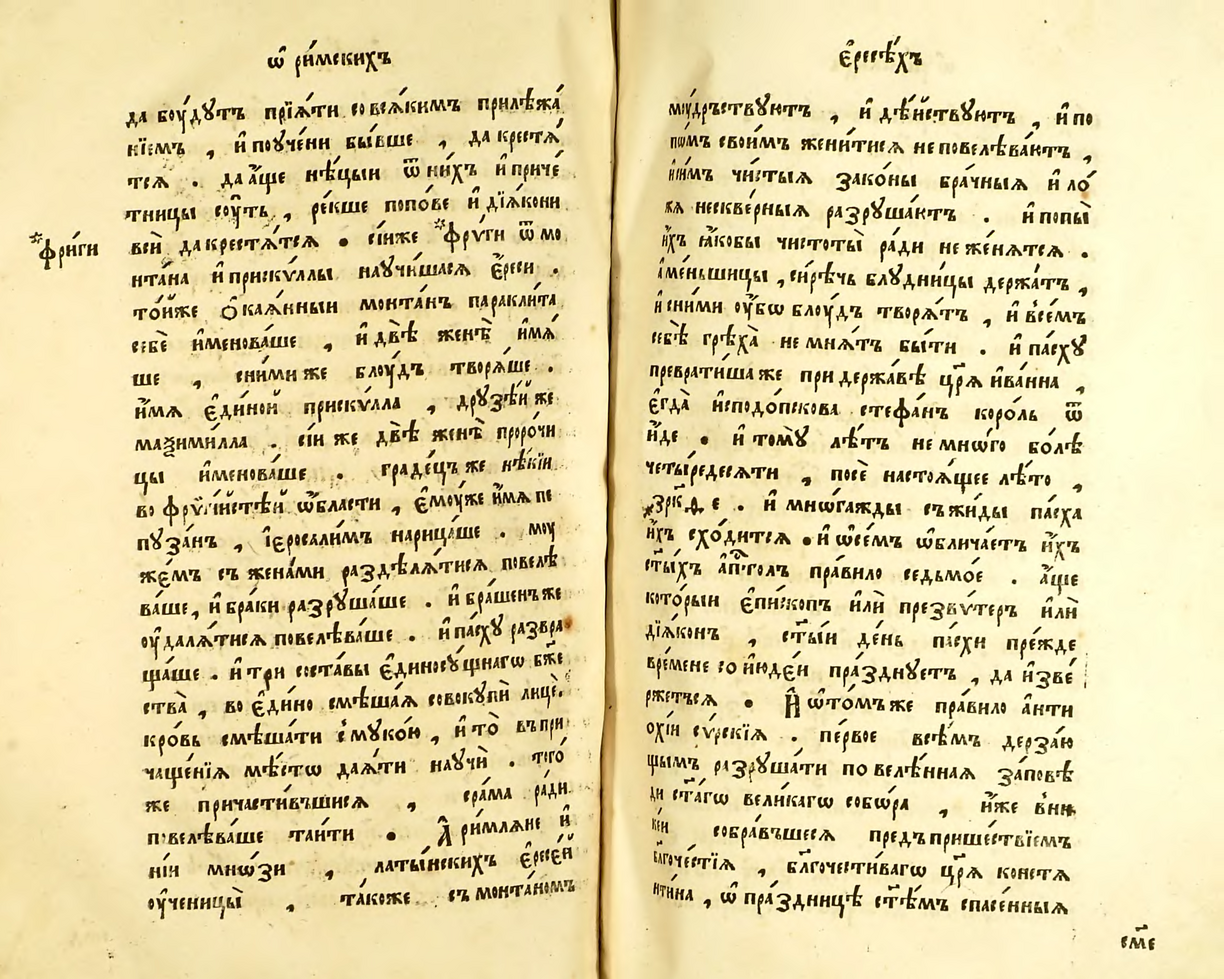 ѿ ри́мскихъ
да боу́дꙋтъ прїѧ́ти совсѧ́кимъ прилѣжа́
нїемъ , и҆ поуче́ни бы́вше , да крестѧ́
тсѧ . да а҆́ще нѣ́цыи ѿ ни́хъ и҆ приче́
тницы соу́ть , ре́кше попо́ве и҆ дїѧ́кони
*фри́ги
всѝ да крестѧ́тсѧ . сі́иже *фрѵ́ги ѿ мо
нта́на и҆ прискѵ́ллы наꙋчи́шасѧ є҆́реси .
то́йже ѻ҆каѧ́нныи монта́нъ паракли́та
себѐ и҆менова́ше , и҆ двѣ̀ женѣ̀ и҆мѧ́
ше , сни́миже блоу́дъ творѧ́ше .
и҆́мѧ є҆ди́ной прискѵ́лла , дрꙋзѣ́й же
маѯими́лла . сі́и же двѣ̀ женѣ̀ проро́чи
цы и҆менова́ше . граде́цъ же нѣ́кїи
во фрѷгі́йстѣй ѡ҆́бласти , є҆моу́же и҆́мѧ пе
пꙋза́нъ , і҆єросали́мъ нарица́ше . моу
же́мъ съ жена́ми раздѣлѧ́тисѧ повелѣ
ва́ше, и҆ бра́ки разрꙋша́ше . и҆ бра́шенъ же
оу҆далѧ́тисѧ повелѣва́ше . и҆ па́схꙋ развра
ща́ше . и҆ трѝ соста́вы є҆диносꙋ́щнагѡ бж҃е
ства̀ , во є҆ди́но смѣша́ѧ совокꙋпѝ лицѐ.
кро́вь смѣша́ти с̾ мꙋко́ю , и҆ то̀ въ при
чаще́нїѧ мѣ́стѡ даѧ́ти наꙋчѝ . того́
же причасти́вшиисѧ , сра́ма ра́ди
повелѣва́ше таи́ти . А҆ ри́млѧне и҆
ні́и мнѡ́зи , латы́нскихъ є҆ресе́й
оу҆ченицы̀ , та́коже съ монта́номъ
є҆ресѣ́хъ
моу́дръствꙋютъ , и҆ дѣ́йствꙋютъ , и҆ по
пѡ́мъ свои́мъ жени́тисѧ не повелѣва́ютъ ,
и҆ си́мъ чи́стыѧ зако́ны бра́чныѧ и҆ ло́
жа нескве́рныѧ разрꙋша́ютъ . и҆ попы̀
и҆́хъ ꙗ҆́кобы чистоты̀ ра́ди не же́нѧтсѧ .
а҆ ме́ньшицы , си́рѣчь блꙋдни́цы держа́тъ ,
и҆ сни́ми оу҆́бѡ блоу́дъ творѧ́тъ , и҆ в̾се́мъ
себѣ̀ грѣха̀ не мнѧ́тъ бы́ти . и҆ па́схꙋ
преврати́шаже при держа́вѣ цр҃ѧ̀ и҆ва́нна ,
є҆гда̀ и҆спод̾о́пскова стефа́нъ коро́ль ѿ
и҆́де . и҆ томꙋ̀ лѣ́тъ не мнѡ́го бо́лѣ
четы́редесѧти , посѐ настоѧ́щее лѣ́то ,
е . и҆ мнѡ́гажды съ жиды̀ па́сха
и҆́хъ схо́дитсѧ . и҆ ѡ҆ се́мъ ѡ҆блича́етъ и҆́хъ
ст҃ы́хъ а҆пⷭ҇толъ пра́вило седьмо́е . а҆́ще
кото́рыи є҆пи́скопъ и҆лѝ презвѵ́теръ и҆лѝ
дїѧ́конъ , ст҃ы́и де́нь па́схи пре́жде
вре́мене со и҆юде́и пра́зднꙋетъ , да и҆зве́
ржетьсѧ . И҆ ѡ҆ то́мъже пра́вило а҆нти
охі́и сѵрскі́ѧ . пе́рвое все́мъ дерза́ю
щымъ разрꙋша́ти повелѣ́нная за́повѣ
ди ст҃а́гѡ вели́кагѡ собѡ́ра , и҆́же в̾ни
кеи собра́вшесѧ предъ прише́ствїемъ
благоче́стїѧ , бл҃гочести́вагѡ цр҃ѧ̀ констѧ
нти́на , ѡ҆ пра́здницѣ ст҃ѣ́мъ спасе́нныѧ
см҃е